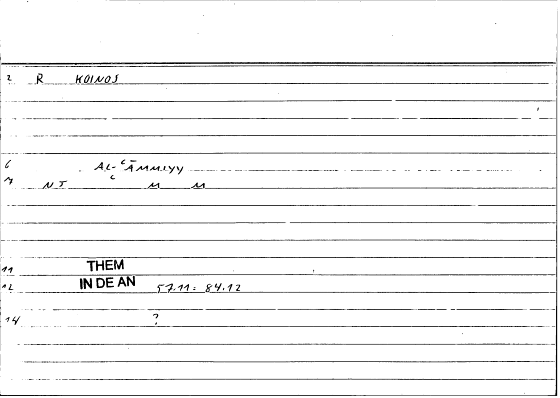 2 R KOINOS
6 AL-ʿĀMMIYY
7 NJ ʿ M M
11 THEM
12 IN DE AN 57.11 = 84.12
14 ?